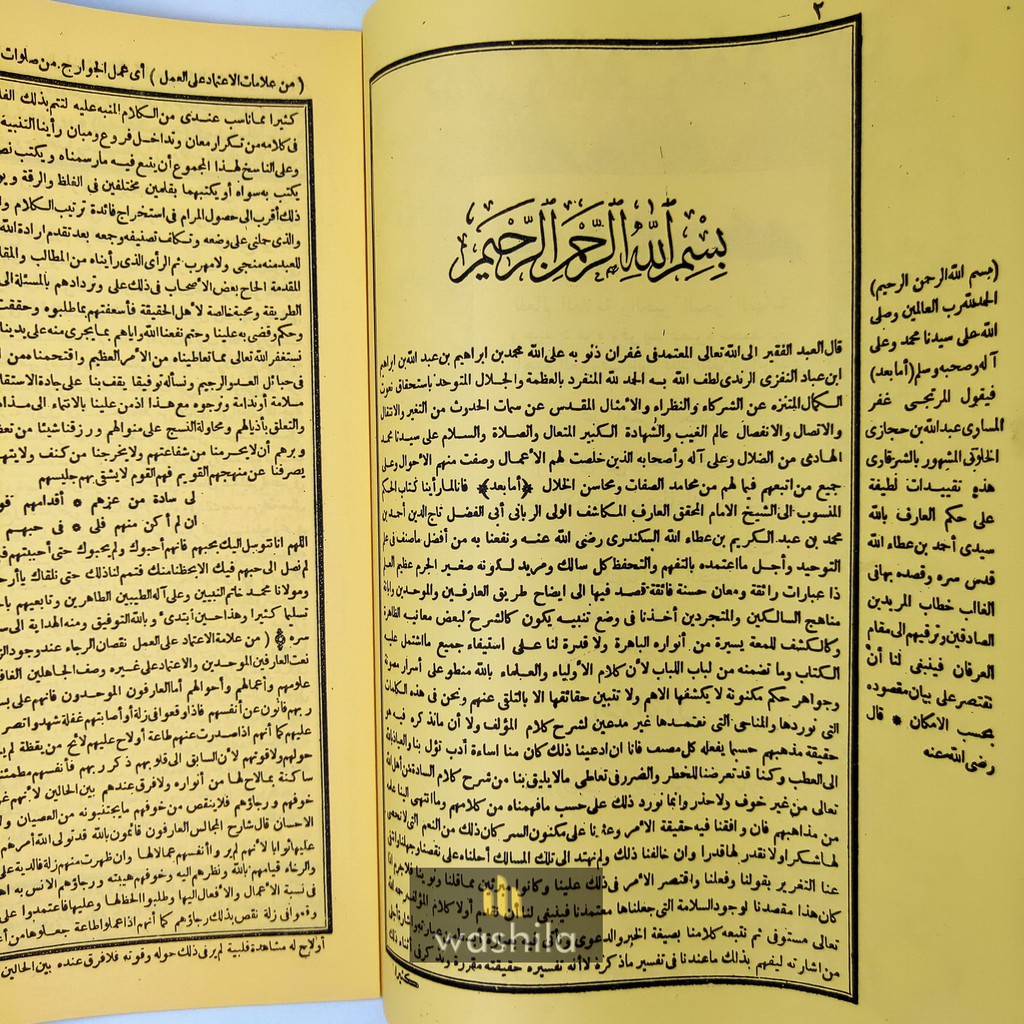 ٢
بسم الله الرحمن الرحيم
قال العبد الفقير الى الله تعالى المعتمد فى غفران ذنوبه على الله محمد بن ابراهيم بن عبد الله بن ابراهيم
ابن عباد النفزى الرندى لطف الله به الحمد لله المنفرد بالعظمة والجلال المتوحد باستحقاق نعوت
الكمال المتنزه عن الشركاء والنظراء والأمثال المقدس عن سمات الحدوث من التغير والانتقال
والاتصال والانفصال عالم الغيب والشهادة الكبير المتعال والصلاة والسلام على سيدنا محمد
الهادى من الضلال وعلى آله وأصحابه الذين خلصت لهم الأعمال وصفت منهم الأحوال وعلى
جميع من اتبعهم فيما لهم من محامد الصفات ومحاسن الخلال ﴿أما بعد﴾ فانا لما رأينا كتاب الحكم
المنسوب الى الشيخ الامام المحقق العارف المكاشف الولى الربانى أبى الفضل تاج الدين أحمد بن
محمد بن عبد الكريم بن عطاء الله السكندرى رضى الله عنه ونفعنا به من أفضل ما صنف فى علم
التوحيد وأجل ما اعتمده بالتفهم والتحفظ كل سالك ومريد لكونه صغير الجرم عظيم العلم
ذا عبارات رائقة ومعان حسنة فائقة قصد فيها الى ايضاح طريق العارفين والموحدين وابانة
مناهج السالكين والمتجردين أخذنا فى وضع تنبيه يكون كالشرح لبعض معانيه الظاهرة
وكالكشف للمعة يسيرة من أنواره الباهرة ولا قدرة لنا على استيفاء جميع ما اشتمل عليه
الكتاب وما تضمنه من لباب اللباب لأن كلام الأولياء والعلماء بالله منطو على أسرار مصونة
وجواهر حكم مكنونة لا يكشفها الا هم ولا تتبين حقائقها الا بالتلقى عنهم ونحن فى هذه الكلمات
التى نوردها والمناحى التى نعتمدها غير مدعين لشرح كلام المؤلف ولا أن ما نذكره فيه هو
حقيقة مذهبهم حسبما يفعله كل مصنف فانا ان ادعينا ذلك كان منا اساءة أدب تؤل بنا والعياذ بالله
الى العطب وكنا قد تعرضنا للخطر والضرر فى تعاطى ما لا يليق بنا من شرح كلام السادة من أهل الله
تعالى من غير خوف ولا حذر وانما نورد ذلك على حسب ما فهمناه من كلامهم وما انتهى الينا علمه
من مذاهبهم فان وافقنا فيه حقيقة الأمر وعثرنا على مكنون السر كان ذلك من النعم التى لا نحصى
لها شكرا ولا نقدر لها قدرا وان خالفنا ذلك ولم نهتد الى تلك المسالك أحلناه على نقصنا وجهلنا وانتفى
عنا التغرير بقولنا وفعلنا واقتصر الأمر فى ذلك علينا وكانوا مبرئين مما قلنا ونوينا فلا جرم اذا
كان هذا مقصدنا لوجود السلامة التى جعلناها معتمدنا فينبغى لنا أن نقدم أولا كلام المؤلف رحمه الله
تعالى مستوفى ثم نتبعه كلامنا بصيغة الخبر والدعوى
من اشارته ليفهم بذلك ما عندنا فى تفسير ما ذكره لا أنه تفسيره حقيقته مقررة ونذكر فى أثناء ذلك
كثيرا
(بسم الله الرحمن الرحيم)
الحمد لله رب العالمين وصلى
الله على سيدنا محمد وعلى
آله وصحبه وسلم (أما بعد)
فيقول المرتجى غفر
المساوى عبد الله بن حجازى
الخلوتى المشهور بالشرقاوى
هذه تقييدات لطيفة
على حكم العارف بالله
سيدى أحمد بن عطاء الله
قدس سره وقصده بها فى
الغالب خطاب المريدين
الصادقين وترقيهم الى مقام
العرفان فينبغى لنا أن
نقتصر على بيان مقصوده
بحسب الامكان * قال
رضى الله عنه
(من علامات الاعتماد على العمل) أى عمل الجوارح من صلوات
كثيرا مما ناسب عندى من الكلام المنبه عليه لتتم بذلك
فى كلامه من تكرار معان وتداخل فروع ومبان رأينا التنبيه
وعلى الناسخ لهذا المجموع أن يتبع فيه ما رسمناه ويكتب
يكتب به سواه أو يكتبهما بقلمين مختلفين فى الغلظ والرقة
ذلك أقرب الى حصول المرام فى استخراج فائدة ترتيب الكلام
والذى حملنى على وضعه وتكلف تصنيفه وجمعه بعد تقدم ارادة الله
للعبد منه منجى ولا مهرب ثم الرأى الذى رأيناه من المطالب
المقدمة الحاح بعض الأصحاب فى ذلك على وتردادهم بالمسئلة
الطريقة ومحبة خالصة لأهل الحقيقة فأسعفتهم بما طلبوه وحققت
وحكم وقضى به علينا وحتم نفعنا الله واياهم بما يجرى منه على يدينا
نستغفر الله تعالى مما تعاطيناه من الأمر العظيم واقتحمناه من
فى حبائل العدو الرجيم ونسأله توفيقا يقف بنا على جادة
ملامة أو ندامة ونرجوه مع هذا اذ من علينا بالانتماء الى
والتعلق بأذيالهم ومحاولة النسج على منوالهم ورزقنا شيئا من
وبرهم أن لا يحرمنا من شفاعتهم ولا يخرجنا من كنف
يصرفنا عن منهجهم القويم فهم القوم لا يشقى بهم جليسهم
لى سادة من عزهم * أقدامهم
ان لم أكن منهم فلى * فى حبهم
اللهم انا نتوسل اليك بحبهم فانهم أحبوك ولم يحبوك حتى أحببتهم
لم نصل الى حبهم فيك الا بحظنا منك فتمم لنا ذلك حتى نلقاك يا
ومولانا محمد خاتم النبيين وعلى آله الطيبين الطاهرين وتابعيهم
تسليما كثيرا وهذا حين أبتدئ وبالله التوفيق ومنه الهداية الى
سره (من علامة الاعتماد على العمل نقصان الرجاء عند وجود
نعت العارفين الموحدين والاعتماد على غيره وصف الجاهلين
علومهم وأعمالهم وأحوالهم أما العارفون الموحدون فانهم على
ربهم فانون عن أنفسهم فاذا وقعوا فى زلة أو أصابتهم غفلة شهدوا
عليهم كما أنهم اذا صدرت عنهم طاعة أو لاح عليهم لائح من يقظة لم
حولهم ولا قوتهم لأن السابق الى قلوبهم ذكر ربهم فأنفسهم مطمئنة
ساكنة بما لاح لها من أنواره ولا فرق عندهم بين الحالين لأنهم
خوفهم ورجاؤهم فلا ينقص من خوفهم ما يجتنبونه من العصيان
الاحسان قال شارح المجالس العارفون قائمون بالله قد تولى الله أمرهم
عليها ثوابا لأنهم لم يروا أنفسهم عمالا لها وان ظهرت منهم زلة فالدية على
والرخاء قيامهم بالله ونظرهم اليه وخوفهم هيبته ورجاؤهم الانس به
فى نسبة الأعمال والأفعال اليها وطلبوا الحظ لها وعليها فاعتمدوا
وقعوا فى زلة نقص بذلك رجاؤهم كما أنهم اذا عملوا طاعة جعلوها من
أو لاح له مشاهدة قلبية لم ير فى ذلك حوله وقوته فلا فرق عنده بين الحالين
washila